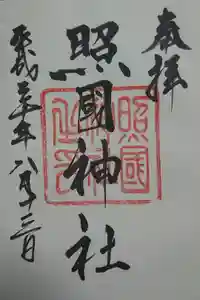 奉拝
照國神社
平成三十年八月十三日
照國